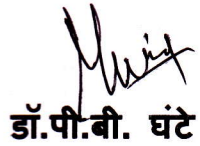 डॉ.पी.बी. घंटे